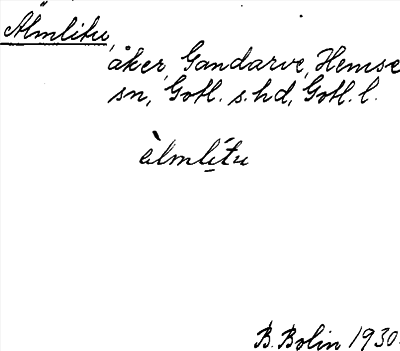 Älmlitu,
åker, Gandarve, Hemse
sn, Gotl. s. hd, Gotl. l.
àlmlítu
B. Bolin 1930.